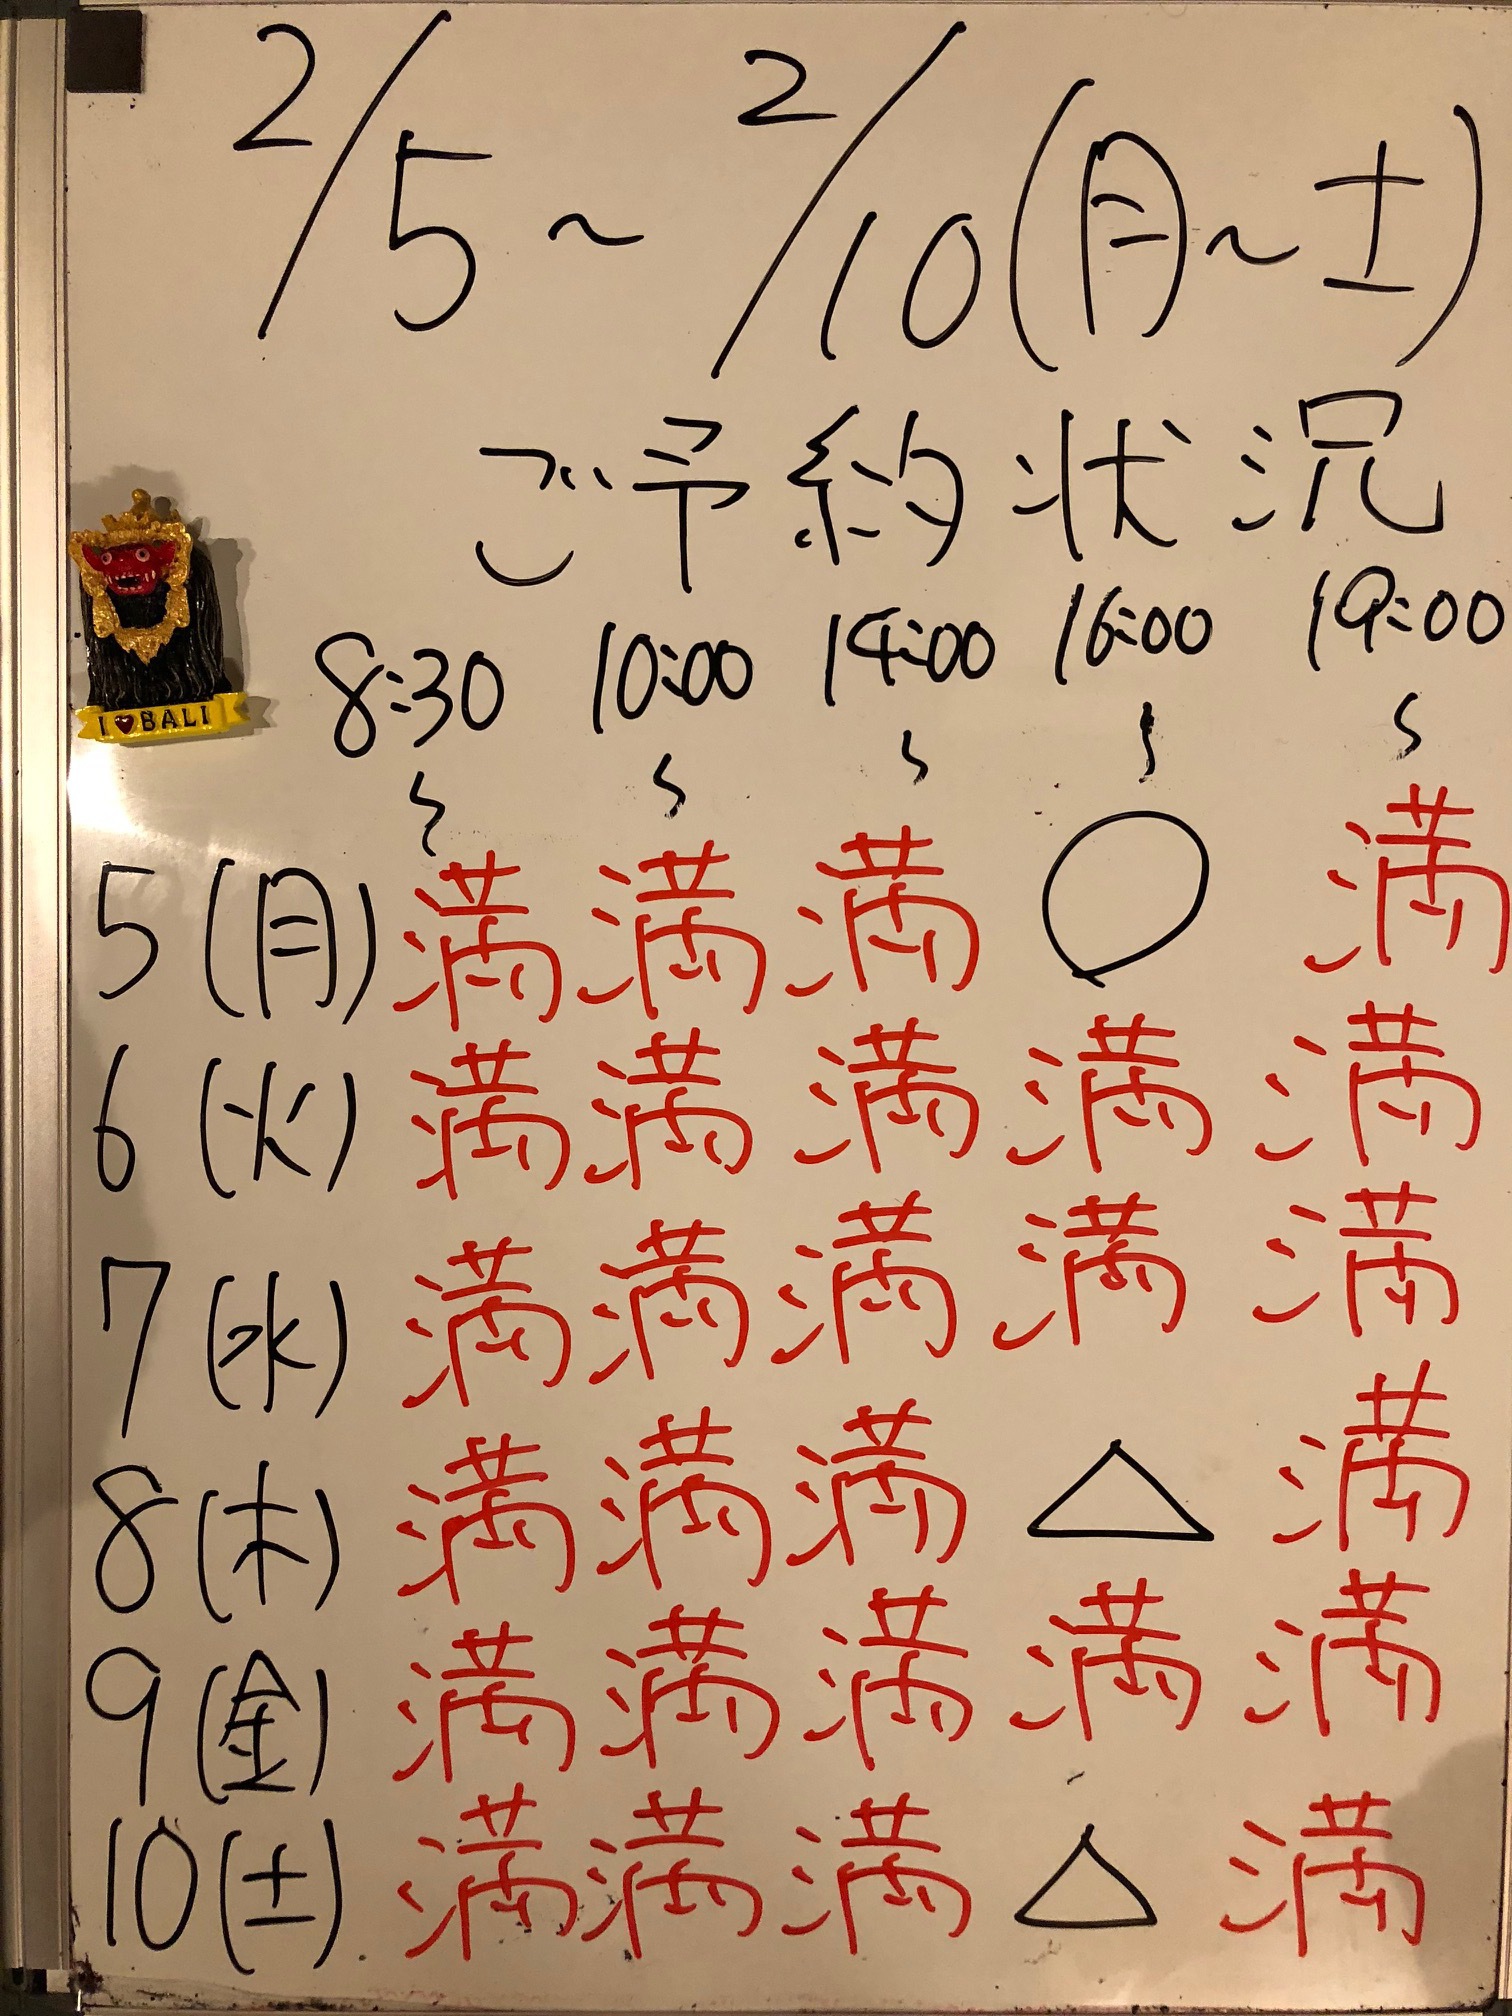 2/5～2/10(月～土)
ご予約状況
8:30 10:00 14:00 16:00 19:00
～ ～ ～ ～ ～
5(月) 満 満 満 ○ 満
6(火) 満 満 満 満 満
7(水) 満 満 満 満 満
8(木) 満 満 満 △ 満
9(金) 満 満 満 満 満
10(土) 満 満 満 △ 満
I ♥ BALI